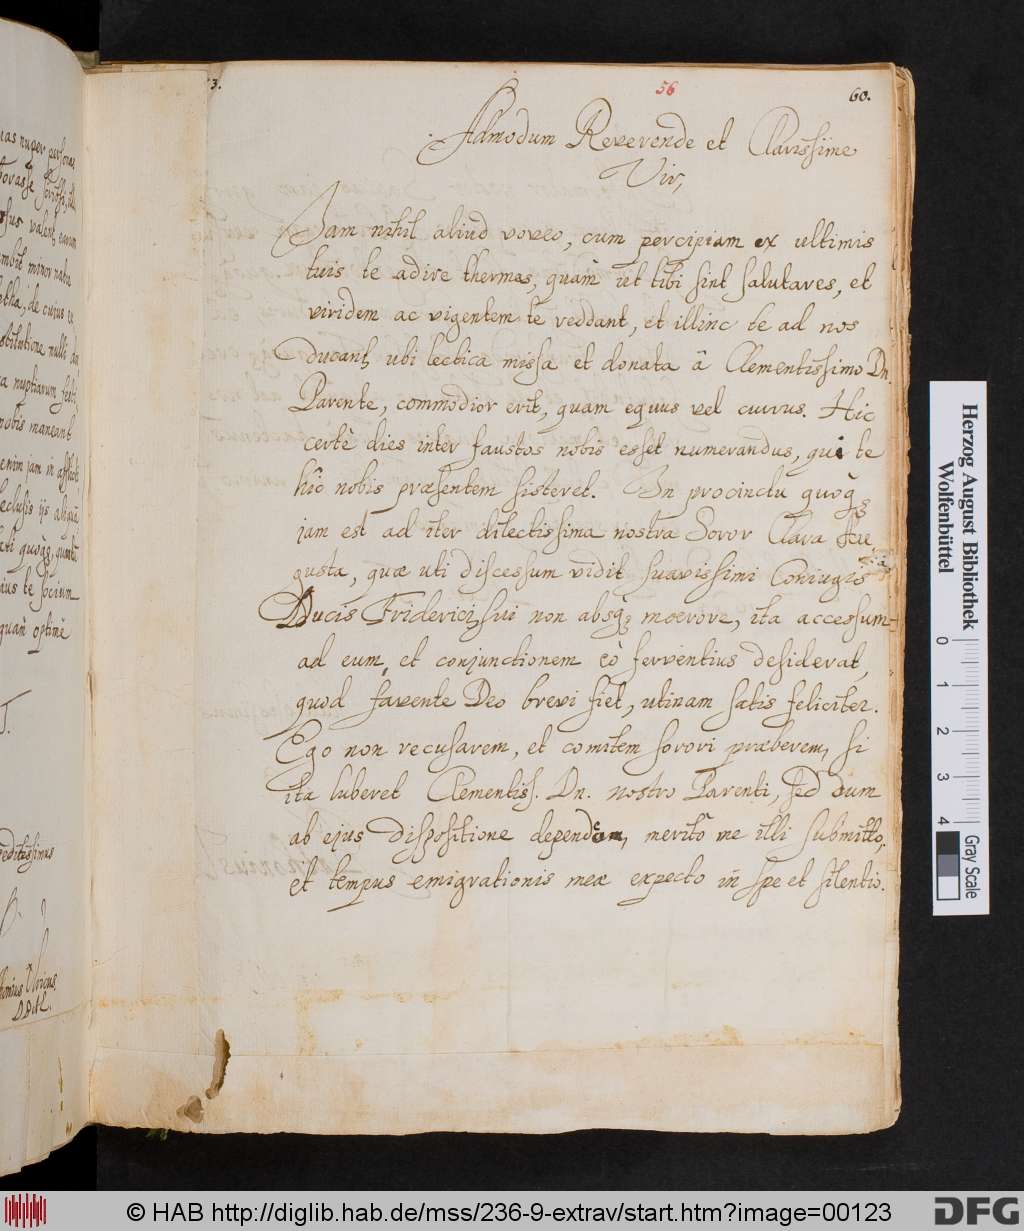 3.
56
60.
Admodum Reverende et Clarissime
Vir,
Jam nihil aliud voveo, cum percipiam ex ultimis
tuis te adire thermas, quàm ut tibi sint salutares, et
viridem ac vigentem te reddant, et illinc te ad nos
ducant, ubi lectica missa et donata â Clementissimo Dn.
Parente, commodior erit, quam equus vel currus. Hic
certè dies inter faustos nobis esset numerandus, qui te
hîc nobis præsentem sisteret. In procinctu quoq;
jam est ad iter dilectissima nostra Soror Clara Au
gusta, quæ uti discessum vidit suavissimi Coniugis
Ducis Friderici sui non absq; moerore, ita accessum
ad eum, et conjunctionem eò ferventius desiderat,
quod favente Deo brevi fiet, utinam satis feliciter.
Ego non recusarem, et comitem sorori præberem, si
ita luberet Clementiss. Dn. nostro Parenti, sed dum
ab ejus dispositione dependeam, meritò me illi submitto,
et tempus emigrationis meæ expecto in spe et silentio.
nuper personæ
valent, earum
ambit minor natu
de cujus ex
nulli
nuptiarum festi
nobis maneant
enim jam in
te socium
quam optimè
Herzog August Bibliothek
Wolfenbüttel
0
1
2
3
4
Gray Scale
© HAB http://diglib.hab.de/mss/236-9-extrav/start.htm?image=00123
DFG